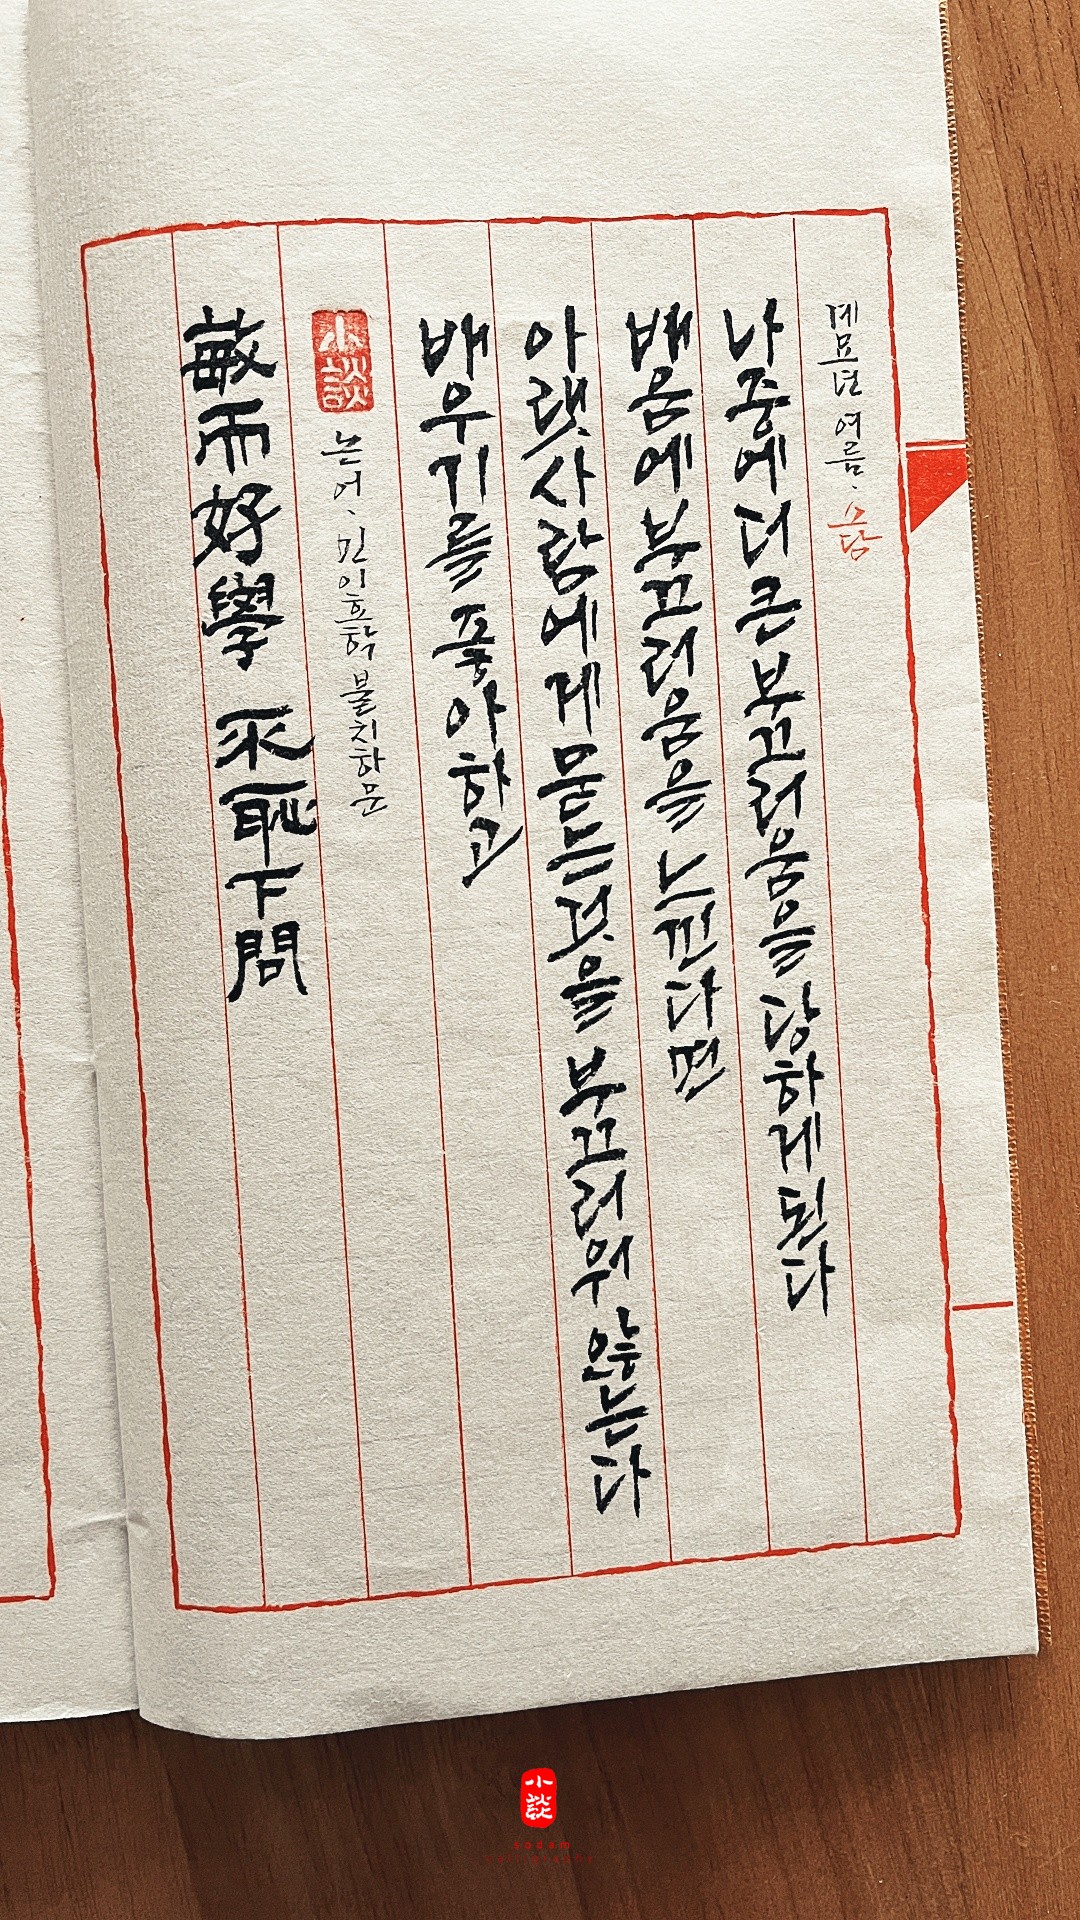 敏而好學 不恥下問
小談
논어, 민이호학 불치하문
배우기를 좋아하고
아랫사람에게 묻는것을 부끄러워 않는다
배움에 부끄러움을 느낀다면
나중에 더 큰 부끄러움을 당하게 된다
계묘년 여름, 소담
小談
sodam